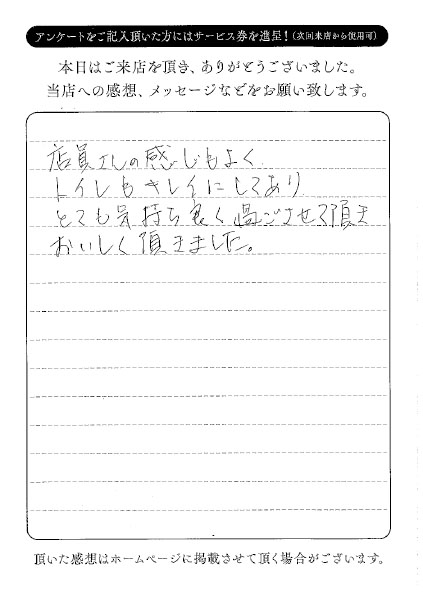 アンケートをご記入頂いた方にはサービス券を進呈！(次回来店から使用可)
本日はご来店を頂き、ありがとうございました。
当店への感想、メッセージなどをお願い致します。
店員さんの感じもよく
トイレもキレイにしてあり
とても気持ち良く過ごさせて頂き
おいしく頂きました。
頂いた感想はホームページに掲載させて頂く場合がございます。